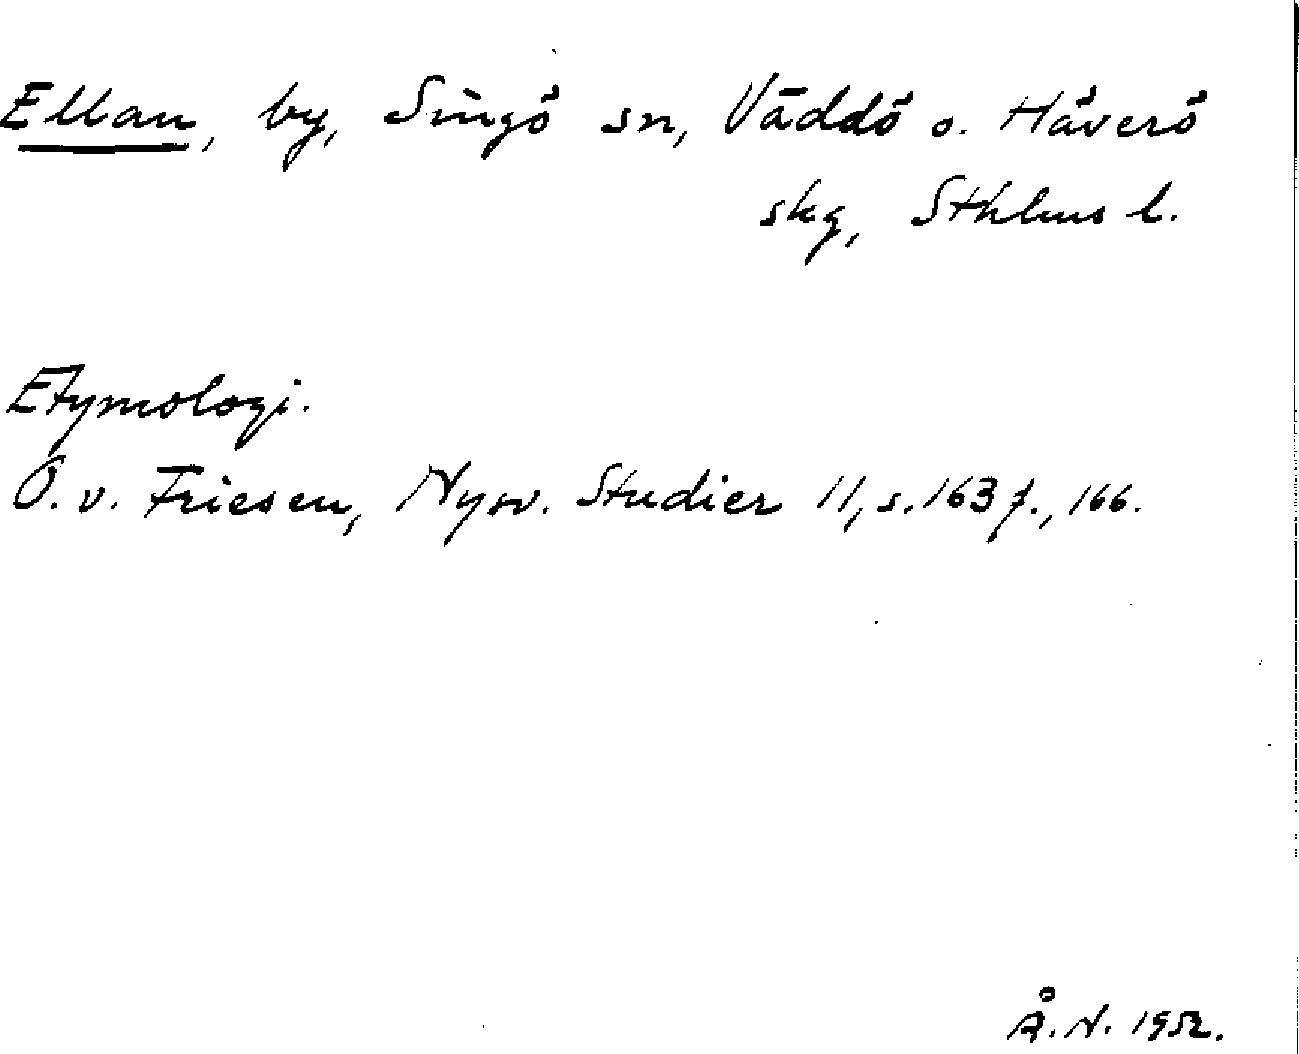 Ellan, by, Singö sn, Väddö o. Häverö
skg, Sthlms l.
Etymologi.
O. v. Friesen, Nysv. Studier 11, s. 163 f., 166.
Å. N. 1952.